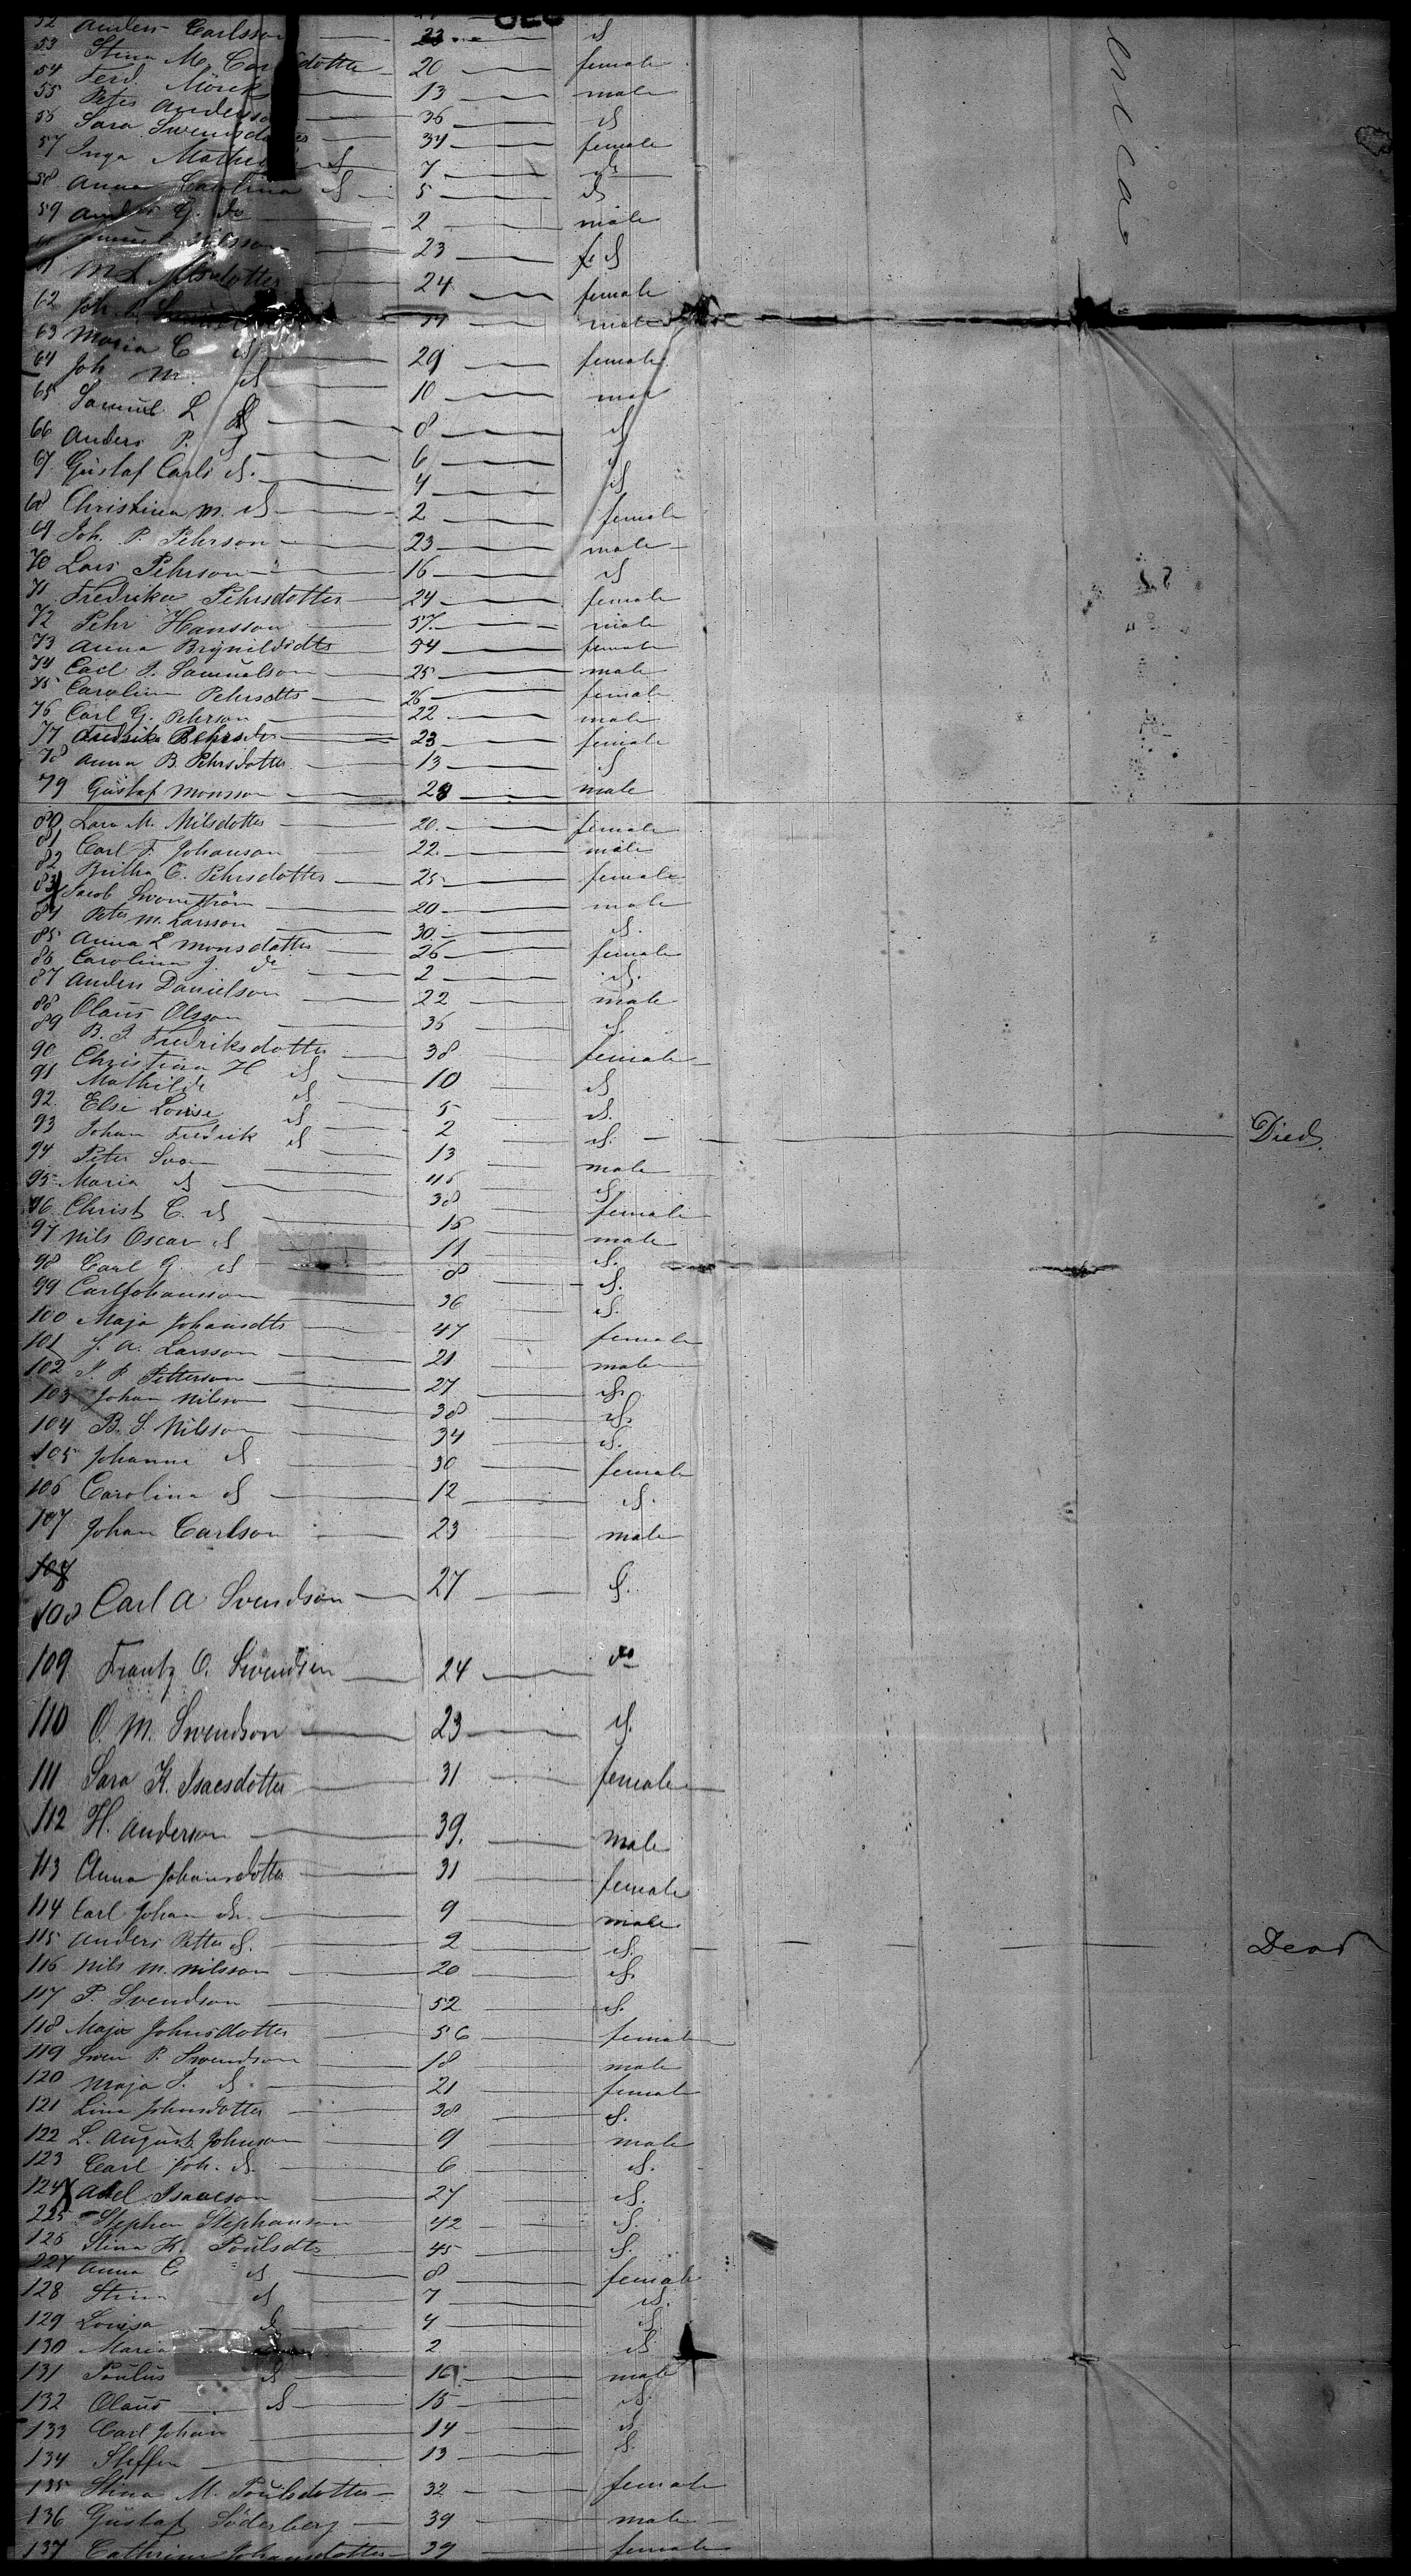 52 Anders Carlsson 23 d
53 Stina M. Carlsdotter 20 female
54 Ferd. Mörck 13 male
55 Peter Anderson 36 d
56 Sara Swensdotter 34 female
57 Inga Mathilda d 7 do
58 Anna Carolina d 5 d
59 Anders G. do 2 male
60 Nilsson 23 d
61 M L Nilsdotter 24 female
62 Joh. male
63 Maria C d 29 female
64 Joh M. d 10 male
65 Samuel L d 8 d
66 Anders P. d 6 d
67 Gustaf Carls d. 4 d
68 Christina M. d 2 female
69 Joh. P. Pehrson 23 male
70 Lars Pehrson 16 d
71 Fredrika Pehrsdotter 24 female
72 Pehr Hansson 57 male
73 Anna Brynildsdtr 54 female
74 Carl J. Samuelson 25 male
75 Carolina Pehrsdtr 26 female
76 Carl G. Pehrson 22 male
77 Fredrika Pehrsdtr 23 female
78 Anna B. Pehrsdotter 13 d
79 Gustaf Monsson 28 male
80 Lara M. Nilsdotter 20 female
81 Carl F. Johanson 22 male
82 Britha C. Pehrsdotter 25 female
83 Jacob Swenström 20 male
84 Peter M. Larsson 30 d.
85 Anna L Monsdotter 26 female
86 Carolina J. do 2 d.
87 Anders Danielson 22 male
88 Olaus Olsson 36 d.
89 B. J. Fredriksdotter 38 female
90 Christina H d 10 d
91 Mathilde d 5 d.
92 Else Lovise d 2 d. Died.
93 Johan Fredrik d 13 male
94 Peter Sven 46 d
95 Maria d 38 female
96 Christ C. d 16 male
97 Nils Oscar d 11 d.
98 Carl G. d 8 d.
99 Carl Johansson 36 d.
100 Maja Johansdtr 47 female
101 J. A. Larsson 21 male
102 J. P. Petterson 27 d.
103 Johan Nilsson 38 d.
104 B. S. Nilsson 34 d.
105 Johanna d 30 female
106 Carolina d 12 d.
107 Johan Carlson 23 male
108
108 Carl A Svendson 27 d.
109 Frantz O. Swendsen 24 do
110 O. M. Swendson 23 d.
111 Sara K. Isacsdotter 31 female
112 H. Anderson 39. male
113 Anna Johansdotter 31 female
114 Carl Johan d. 9 male
115 Anders Petter d. 2 d. Dead
116 Nils M. Nilsson 20 d.
117 P. Svendson 52 d.
118 Maja Johnsdotter 56 female
119 Swen P. Swendson 18 male
120 Maja J. d. 21 female
121 Lina Johnsdotter 38 d.
122 L. August Johnson 9 male
123 Carl Joh. d. 6 d.
124 Axel Isaacson 27 d.
225 Stephen Stephanson 42 d.
126 Stina K. Poulsdtr 45 d.
227 Anna C d 8 female
128 Stina d 7 d.
129 Lovisa d 4 d.
130 Maria 2 d
131 Poulus d 16 male
132 Olaus d 15 d.
133 Carl Johan 14 d
134 Steffen 13 d.
135 Stina M. Poulsdotter 32 female
136 Gustaf Söderberg 39 male
137 Cathrina Johansdotter 39 female